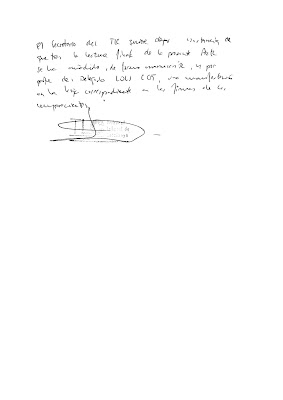 El Secretario del TC quiere dejar constancia de
que tras la lectura final de la presente Acta
se ha añadido, de forma manuscrita, y por
parte del Delegado LOLS COS, una manifestación
en la hoja correspondiente a las firmas de los
comparecientes.